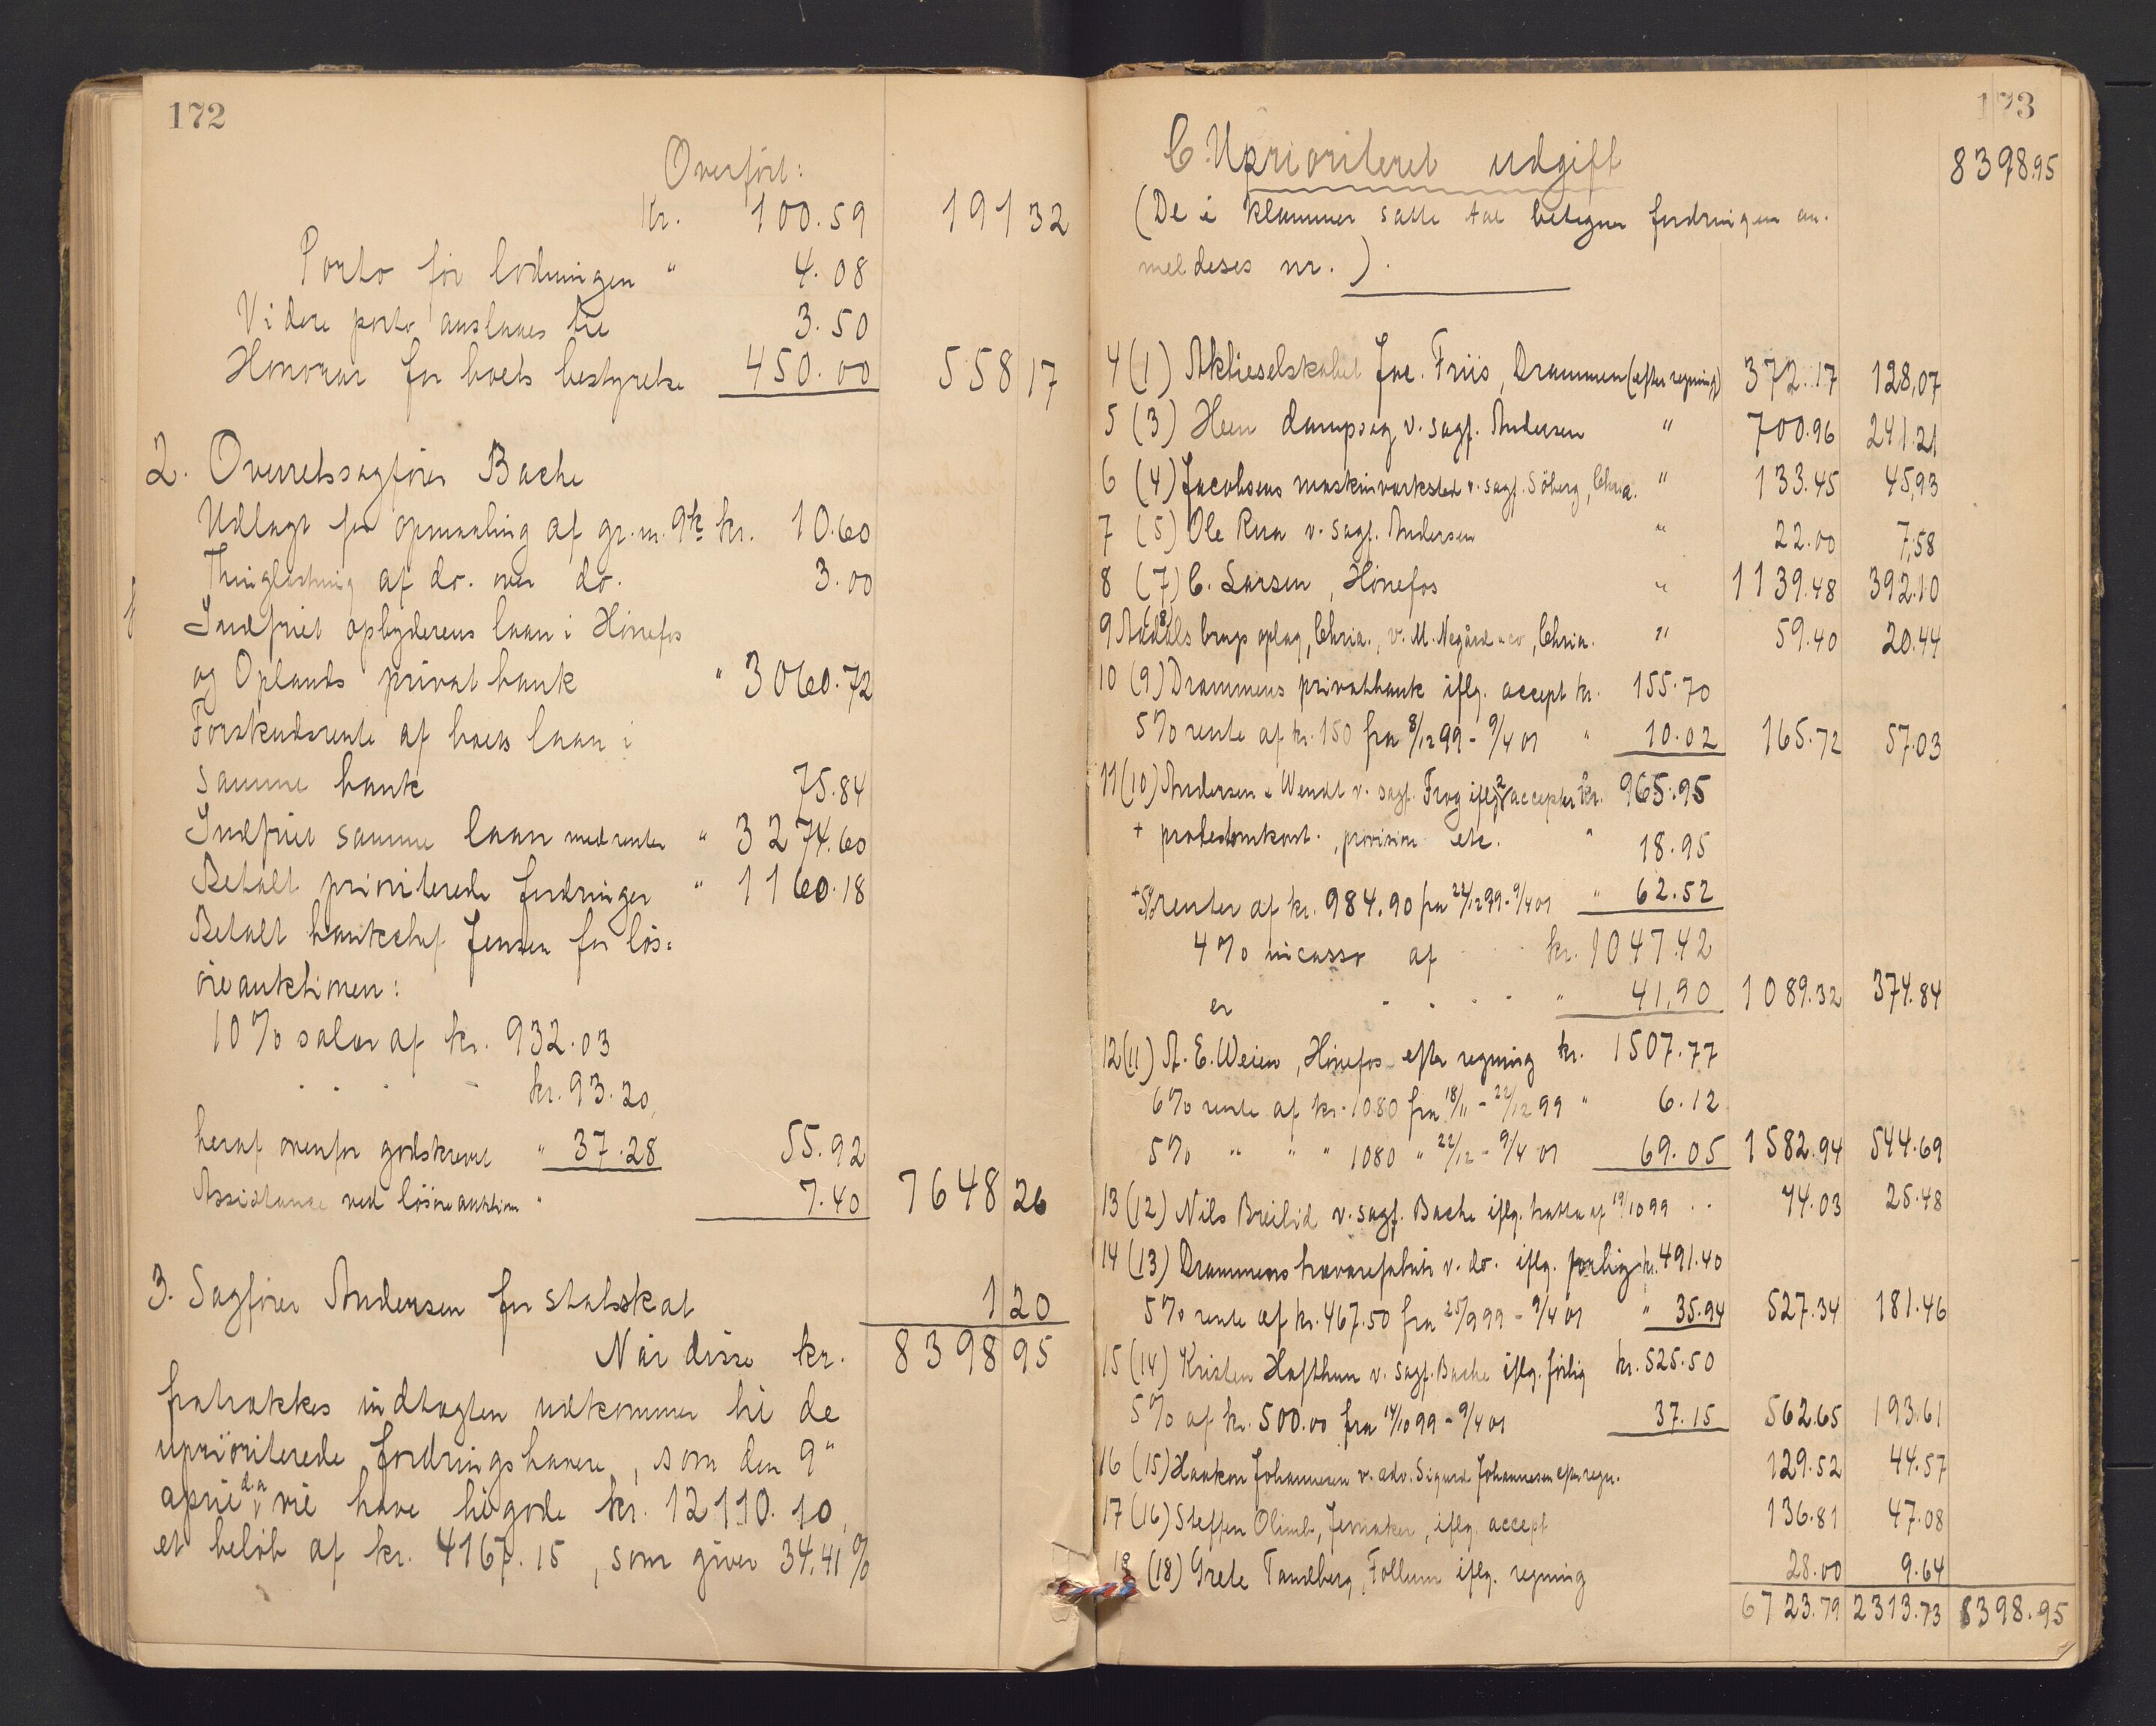 172
Overført:
Kr. 100.59 191 32
Porto for lodningen " 4.08
Videre porto anslaaes til 3.50
Honorar for boets bestyrelse 450.00 558 17
2. Overretssagfører Bache
Udlagt for opmaaling af gr. m. kr. 10.60
Thinglæsning af do. over do. 3.00
Indfriet opbyderens laan i Hønefos
og Oplands privatbank " 3060.72
Forskudsrente af boets laan i
samme bank 75.84
Indfriet samme laan med renter " 3274.60
Betalt prioriterede fordringer " 1160.18
Betalt bankchef Jensen for løs=
øreauktionen:
10% salær af kr. 932.03
kr. 93.20,
heraf ovenfor godskrevet " 37.28 55.92
Assistance ved løsøreauktion " 7.40 7648 26
3. Sagfører Andersen for statsskat 1 20
Når disse kr. 8398 95
fratrækkes indtægten udkommer til de
uprioriterede fordringshavere, som den 9"
april da vil have tilgode kr. 12110.10,
et beløb af kr. 4167.15, som giver 34,41%
173
C. Uprioriteret udgift 8398.95
(De i klammer satte tal betegner fordringen an-
meldeses nr.).
4 (1) Aktieselskabet Jac. Friis, Drammen (efter regning) 372.17 128,07
5 (3) Heen dampsag v. sagf. Andersen " 700.96 241.21
6 (4) Jacobsens maskinværksted v. sagf. Söberg, Chria. " 133.45 45,93
7 (5) Ole Rua v. sagf. Andersen " 22.00 7,58
8 (7) C. Larsen, Hønefos " 1139.48 392.10
9 (8) Aadals brugs oplag, Chria., v. M. Negård & co, Chria. " 59.40 20.44
10 (9) Drammens privatbank iflg. accept kr. 155.70
5% rente af kr. 150 fra 8/12 99 - 9/4 01 " 10.02 165.72 57.03
11 (10) Andersen & Wendt v. sagf. Frog iflg. 2 accepter kr. 965.95
+ protestomkost., provision etc. " 18.95
+ 5% renter af kr. 984.90 fra 22/12 99 - 9/4 01 " 62.52
4% incasso af kr. 1047.42
er " 41,90 1089.32 374.84
12 (11) A. E. Weien, Hønefos efter regning kr. 1507.77
6% rente af kr. 1080 fra 18/11 - 22/12 99 " 6.12
5% " " " 1080 " 22/12 - 9/4 01 69.05 1582.94 544.69
13 (12) Nils Breilid v. sagf. Bache iflg. tratta af 19/10 99 74.03 25.48
14 (13) Drammens trævarefabrik v. do. iflg. forlig kr. 491.40
5% rente af kr. 467.50 fra 25/9 99 - 9/4 01 " 35.94 527.34 181.46
15 (14) Kristen Hafthun v. sagf. Bache iflg. forlig kr. 525.50
5% af kr. 500.00 fra 14/10 99 - 9/4 01 37.15 562.65 193.61
16 (15) Haakon Johannesen v. adv. Sigurd Johannesen efter regn. 129.52 44.57
17 (16) Steffen Olimb, Jevnaker, iflg. accept 136.81 47.08
18 (18) Grete Tandberg, Follum iflg. regning 28.00 9.64
6723.79 2313.73 8398.95